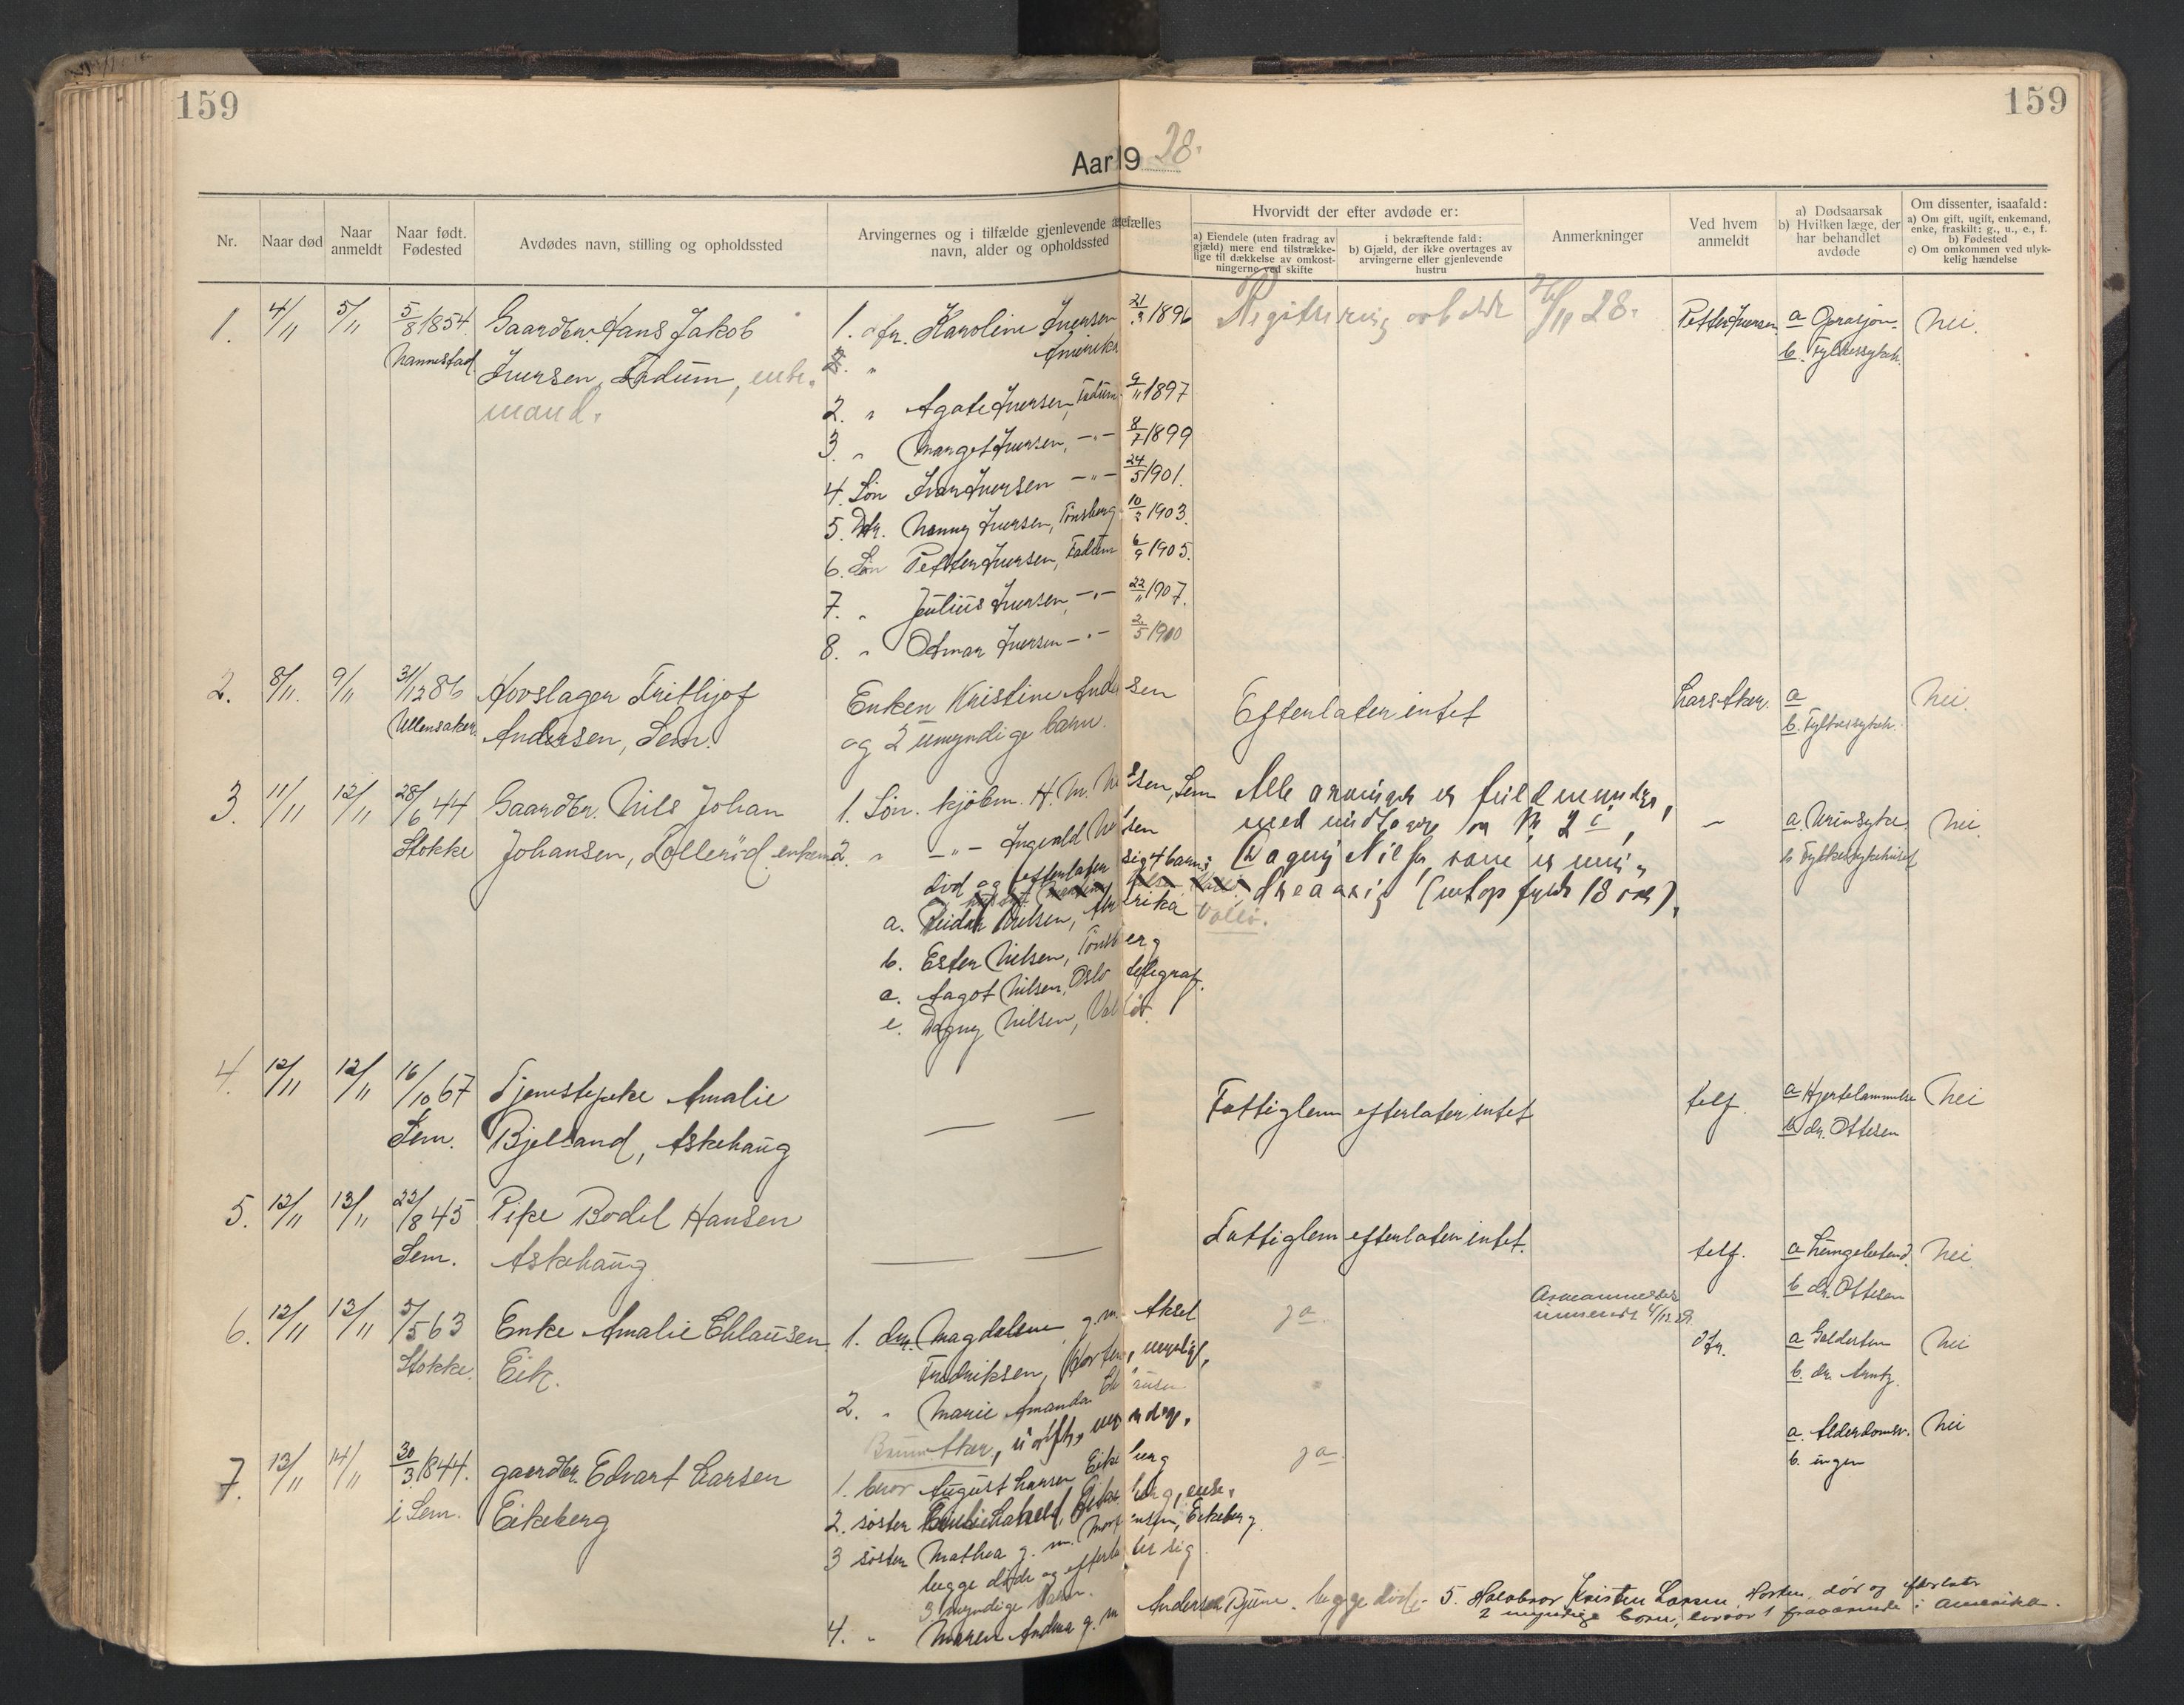 159
159
Aar 1928.
Nr.
Naar død
Naar anmeldt
Naar født. Fødested
Avdødes navn, stilling og opholdssted
Arvingernes og i tilfælde gjenlevende ægtefælles navn, alder og opholdssted
Hvorvidt der efter avdøde er:
a) Eiendele (uten fradrag av gjæld) mere end tilstrækkelige til dækkelse av omkostningerne ved skifte
i bekræftende fald: b) Gjæld, der ikke overtages av arvingerne eller gjenlevende hustru
Anmerkninger
Ved hvem anmeldt
a) Dødsaarsak b) Hvilken læge, der har behandlet avdøde
Om dissenter, isaafald: a) Om gift, ugift, enkemand, enke, fraskilt: g., u., e., f. b) Fødested c) Om omkommen ved ulykkelig hændelse
1. 4/11 5/11 5/8 1854. Gaardbr. Hans Jakob
Nannestad Iversen, Fadum, enke-
mand.
1. dtr. Karoline Iversen 21/3 1896
Amerika
2. " Agate Iversen, Fadum 9/11 1897
3. " Marget Iversen, -"- 8/7 1899
4. Søn Ivar Iversen -"- 24/5 1901.
5. Dtr. Nanny Iversen, Tønsberg 10/3 1903.
6. Søn Petter Iversen, Fadum 6/9 1905.
7. " Julius Iversen, -"- 22/11 1907.
8. " Odmar Iversen -"- 2/5 1910
Registrering
11 28.
Petter Iversen
a Oprasjon
b. Fylkessykeh.
Nei.
2. 8/11. 9/11 31/12 86 Hovslager Frithjof
Ullensaker. Andersen, Sem.
Enken Kristine Andersen
og 2 umyndige barn.
Efterlater intet
Lars Aker.
a
b. Fylkessykeh.
Nei.
3. 11/11 12/11 28/6 44 Gaardbr. Nils Johan
Stokke Johansen, Lollerød. enkem.
1. Søn. kjøbm. H. M. Nilsen, Sem
2. " -"- Ingvald Nilsen
død og efterlater sig 4 barn:
a. Reidar Nilsen, Amerika
b. Ester Nilsen, Tønsberg
c. Aagot Nilsen, Oslo telegraf.
e. Dagny Nilsen, Valløi
Valløi.
Alle arvinger er fuldmyndige,
med undtagelse av Nr 2
Dagny Nilsen, som er
(18 aar).
a. Urinsyke
b Fylkessykehuset
Nei.
4. 12/11 12/11 16/10 67 Tjenstepike Amalie
Sem. Bjelland, Askehaug
Fattiglem efterlater intet
telf.
a Hjertelammelse
b dr. Ottesen
Nei
5. 12/11 13/11 22/8 45 Pike Bodil Hansen
Sem. Askehaug
Fattiglem efterlater intet.
telf.
a Lungebetend.
b dr. Ottesen
Nei.
6. 12/11 13/11 5/5 63 Enke Amalie Ellausen
Stokke. Eik.
1. dtr. Magdalene g.m. Aksel
Fredriksen, Horten, myndig,
2. " Marie Amanda
ugift, myndig.
ja.
a Galdesten
b. dr. Arntz.
Nei
7. 13/11 14/11 30/3 1844. gaardbr. Edvart Larsen
i Sem. Eikeberg
1. bror August Larsen Eikeberg
2. søster Eikeberg, enke.
3 søster Mathea g. m. Eikeberg.
begge døde og efterlater sig
3 myndige barn.
4. " Maren Andrea g. m Andersen Bjune. begge døde - 5. Halvbror Kristen Larsen, Horten, død og efterlater
2 myndige børn, hvorav 1 fraværende i Amerika.
ja.
a. Alderdomsv.
b. ingen
Nei